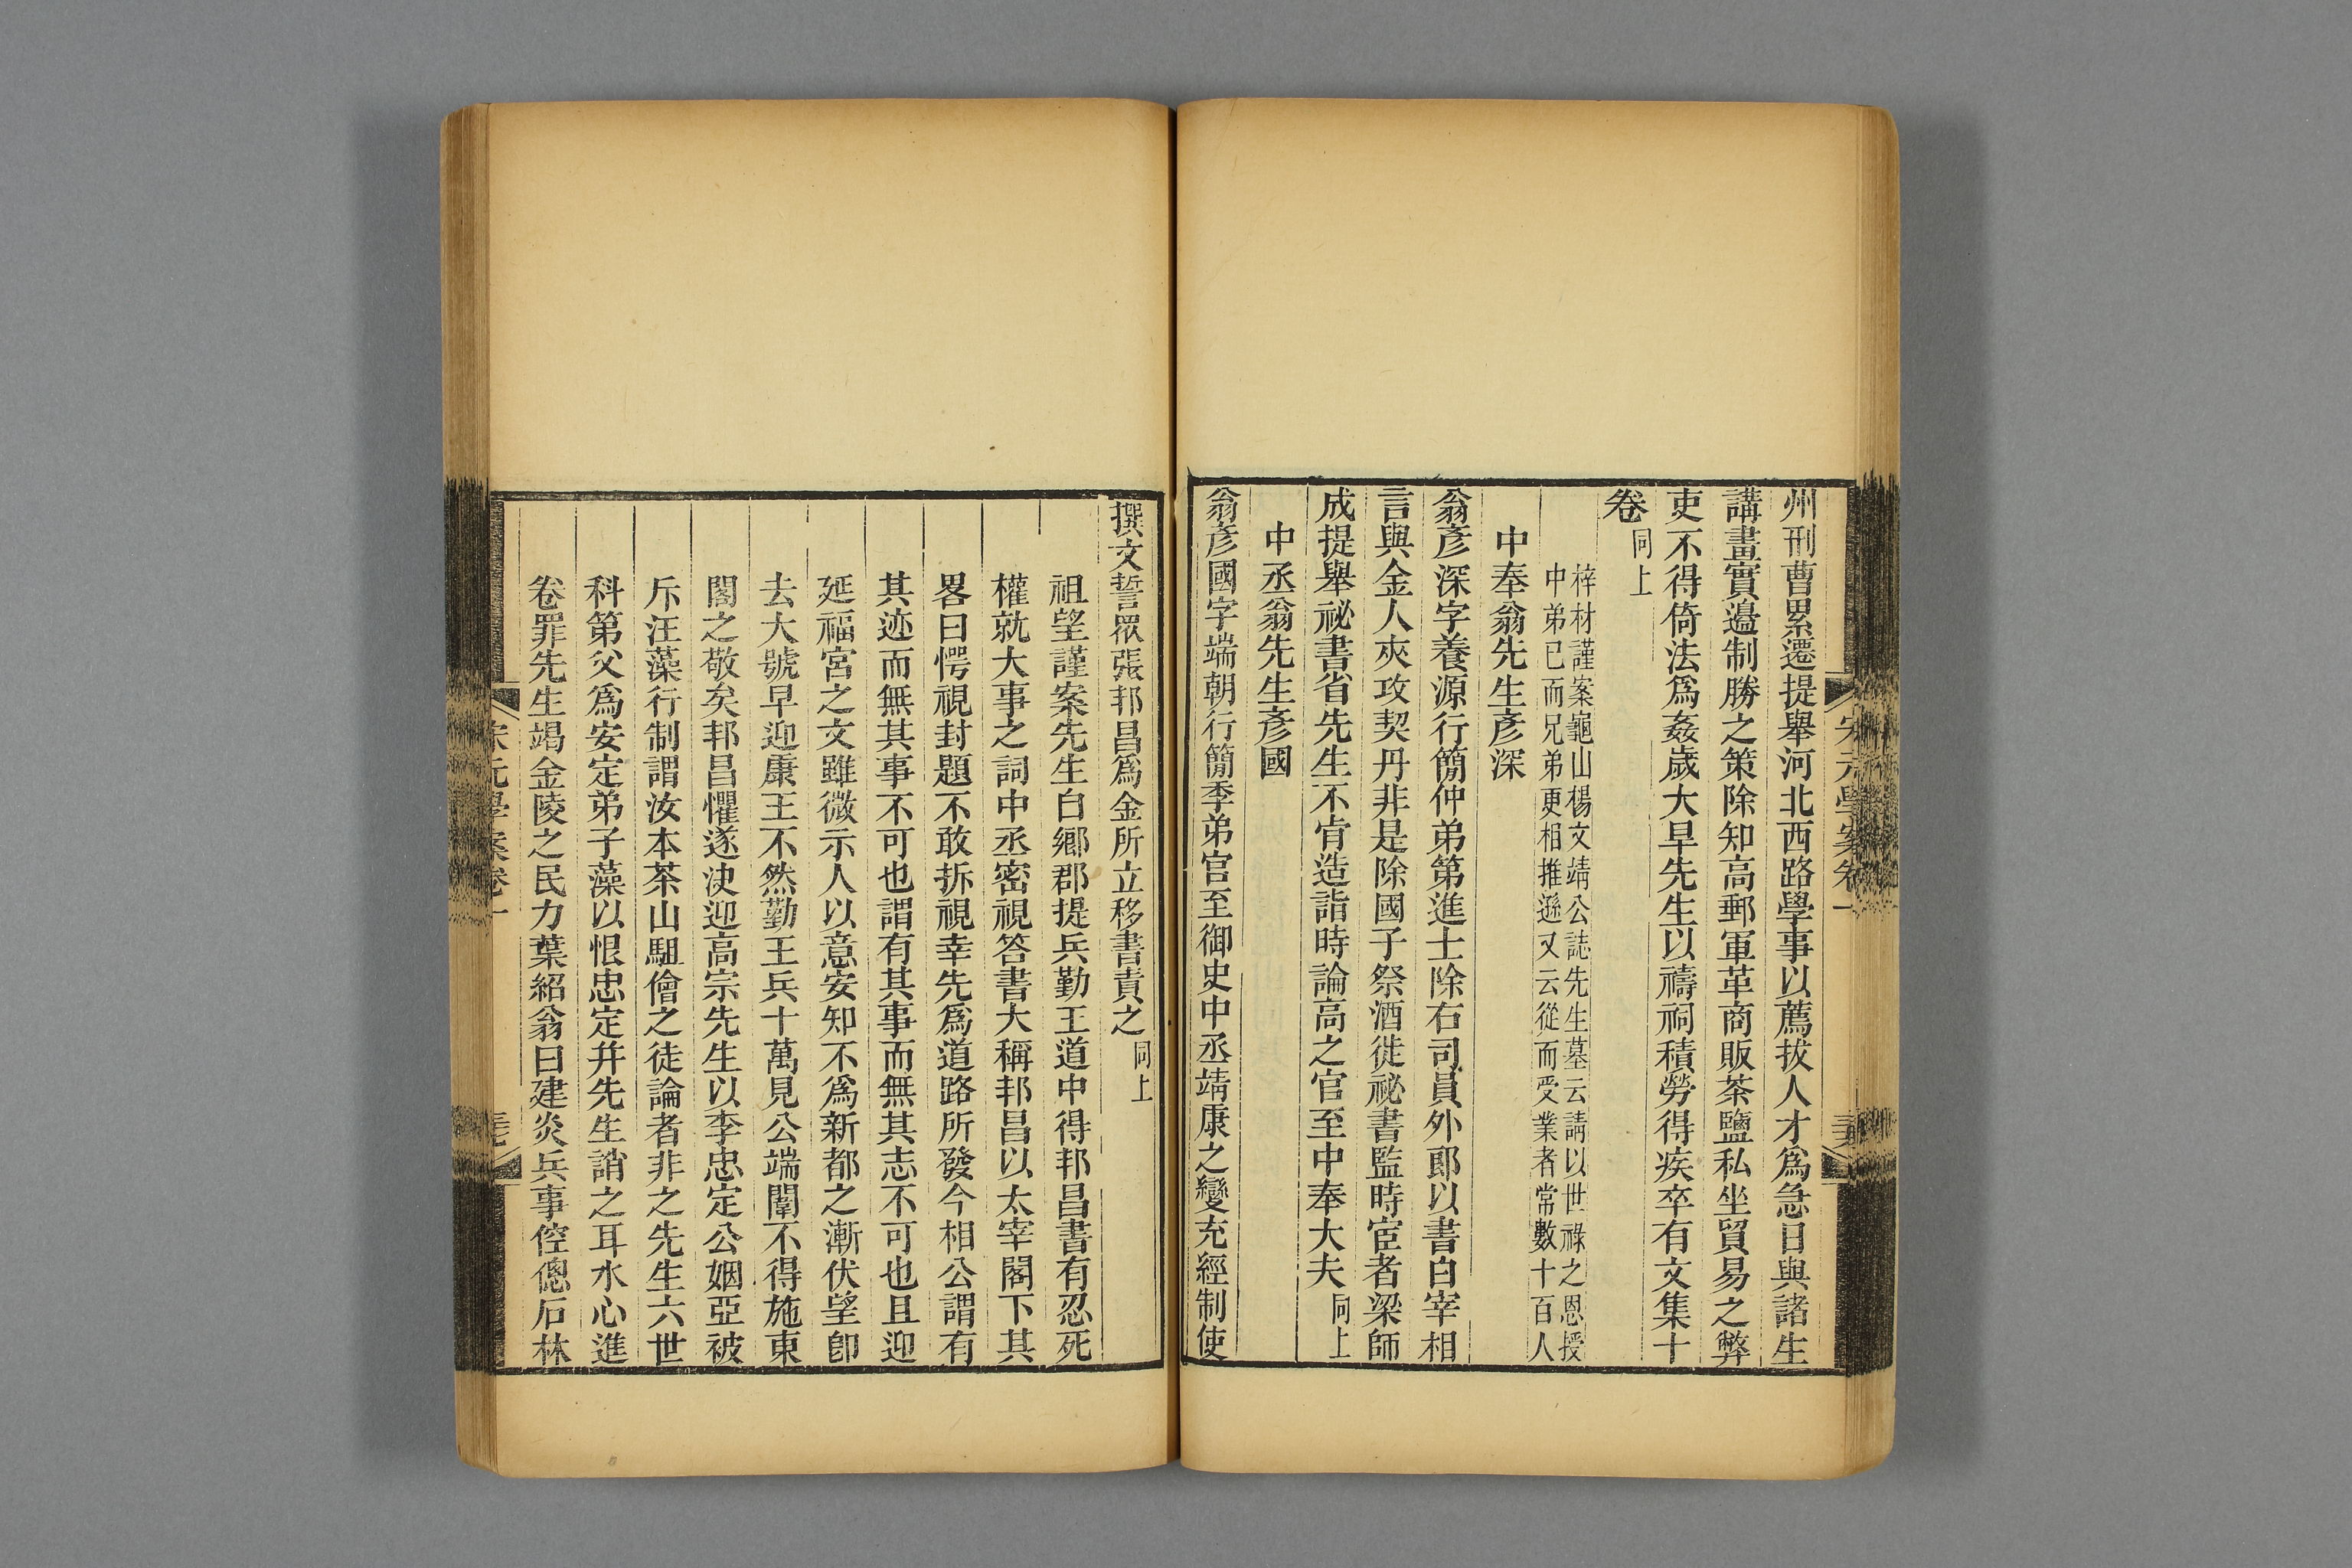 州刑曹累遷提舉河北西路學事以薦拔人才爲急日與諸生
講晝實邉制勝之策除知高郵軍革商販茶鹽私坐貿易之弊
吏不得倚法爲姦歲大旱先生以禱祠積勞得疾卒有文集十
卷同上
梓材謹案龜山楊文靖公誌先生墓云請以世祿之恩授
中弟已而兄弟更相推遜又云從而受業者常數十百人
中奉翁先生彥深
翁彥深字養源行簡仲弟第進士除右司員外郞以書白宰相
言與金人夾攻契丹非是除國子祭酒徙祕書監時宦者梁師
成提舉祕書省先生不肯造詣時論高之官至中奉大夫同上
中丞翁先生彥國
翁彥國字端朝行簡季弟官至御史中丞靖康之變充經制使
宋元學案卷一
撰文誓眾張邦昌爲金所立移書責之同上
祖望謹案先生白鄉郡提兵勤王道中得邦昌書有忍死
權就大事之詞中丞密視答書大稱邦昌以太宰閣下其
畧曰愕視封題不敢拆視幸先爲道路所發今相公謂有
其迹而無其事不可也謂有其事而無其志不可也且迎
延福宮之文雖微示人以意安知不爲新都之漸伏望卽
去大號早迎康王不然勤王兵十萬見公端闈不得施東
閣之敬矣邦昌懼遂決迎高宗先生以李忠定公姻亞被
斥汪藻行制謂汝本茶山駔儈之徒論者非之先生六世
科第父爲安定弟子藻以恨忠定幷先生誚之耳水心進
卷罪先生竭金陵之民力葉紹翁曰建炎兵事倥傯石林
宋元學案卷一